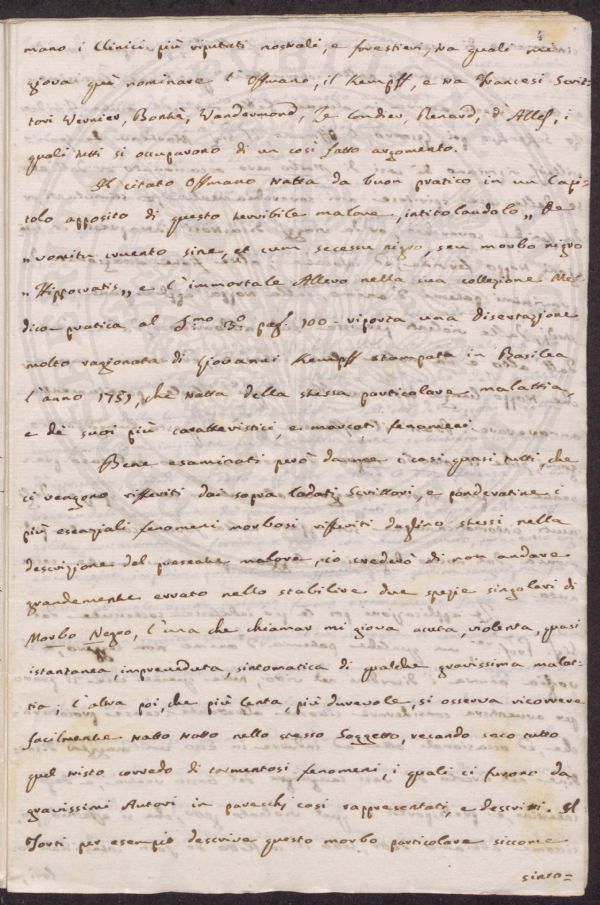 4
mano i Clinici più riputati nostrali, e forestieri, tra quali mi
giova quì nominare l'Offmano, il Kempff, e tra Francesi Scrit-
tori Vernier, Bontè, Vandermond, Le Coudier, Renard, d'Alles, i
quali tutti si occuparono di un così fatto argomento.
Il citato Offmano tratta da buon pratico in un Capi-
tolo apposito di questo terribile malore, intitolandolo „ De
„ vomitu cruento sine, et cum secessu nigro, seu morbo nigro
„ Hippocratis „ e l'immortale Allero nella sua collezione Me-
dico pratica al T.mo 3.o pag. 100 - riporta una disertazione
molto ragionata di Giovanni Kempff stampata in Basilea
l'anno 1751, che tratta della stessa particolare malattia,
e de' suoi più caratteristici, e marcati fenomeni.
Bene esaminati però da me i casi quasi tutti, che
ci vengono rifferiti dai sopra lodati Scrittori, e ponderatine i
più essenziali fenomeni morbosi rifferiti dagl'ino stessi nella
descrizione del presente malore, io crederò di non andare
grandemente errato nello stabilire due spezie singolari di
Morbo Negro, l'una che chiamar mi giova acuta, violenta, quasi
istantanea, impreveduta, sintomatica di qualche gravissima malat-
tia; l'altra poi, che più lenta, più durevole, si osserva ricorrere
facilmente tratto tratto nello stesso Soggetto, recando seco tutto
quel tristo corredo di tormentosi fenomeni, i quali ci furono da
gravissimi Autori in parecchi casi rappresentati, e descritti. Il
Torti per esempio descrive questo morbo particolare siccome
sinto=